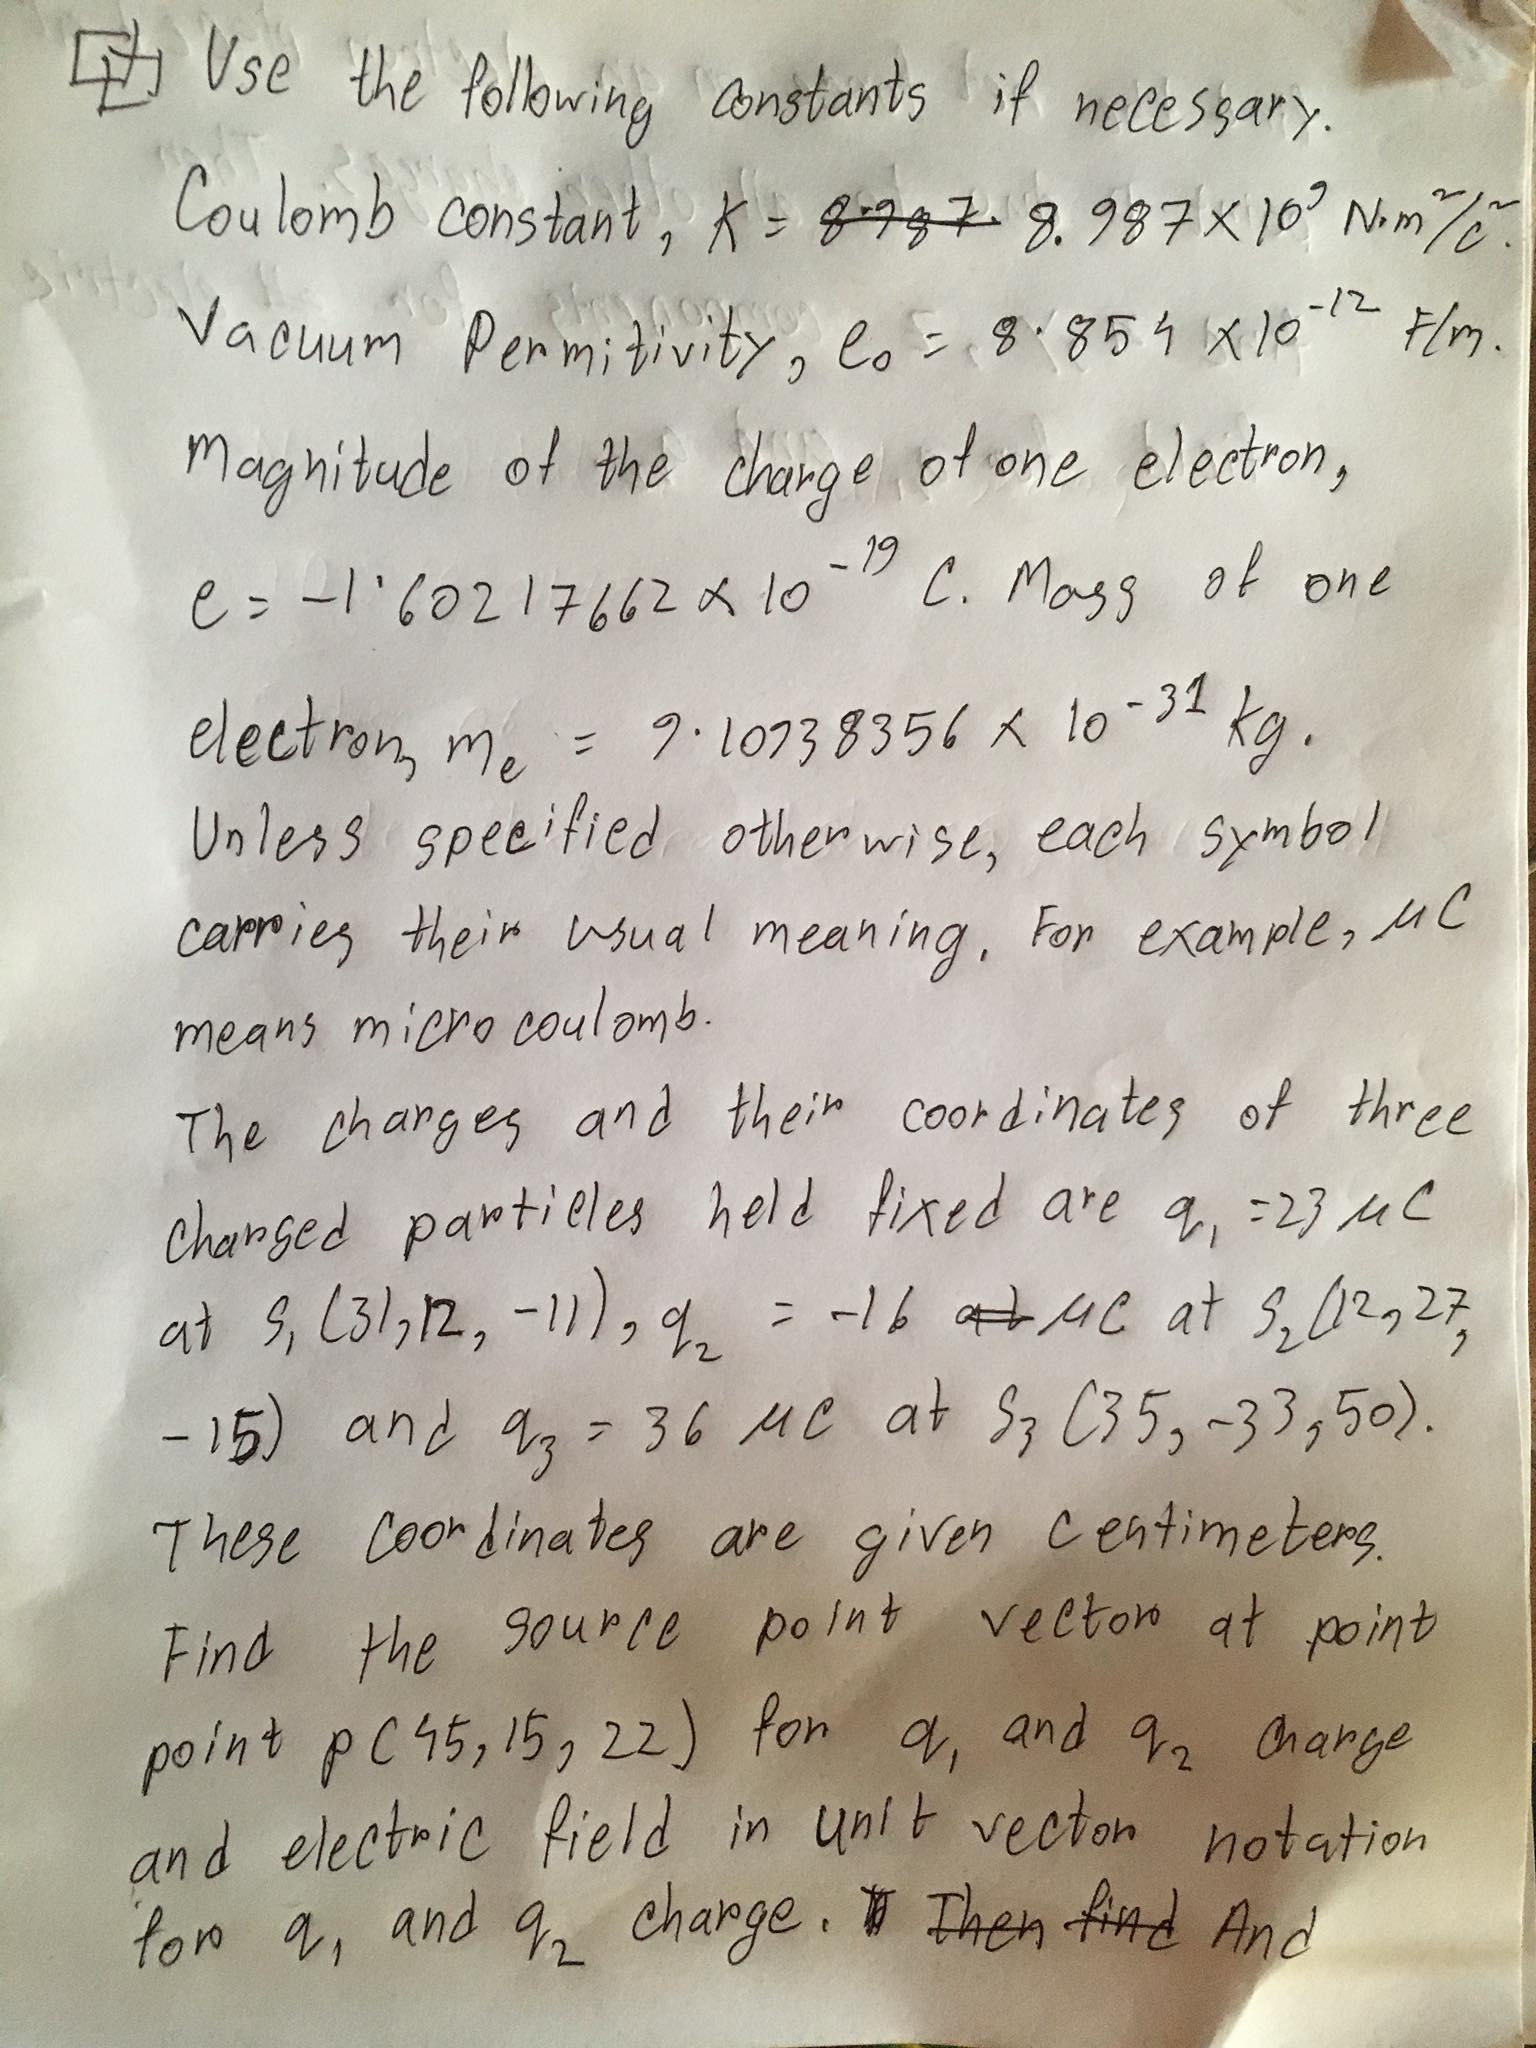 Use the following constants if necessary.
Coulomb constant, K = 8.987 8.987 × 10⁹ N.m²/c².
Vacuum Permitivity, e₀ = 8.854 × 10⁻¹² F/m.
Magnitude of the charge of one electron,
e = -1.60217662 × 10⁻¹⁹ C. Mass of one
electron, mₑ = 9.10938356 × 10⁻³¹ kg.
Unless specified otherwise, each symbol
carries their usual meaning. For example, μC
means micro coulomb.
The charges and their coordinates of three
charged particles held fixed are q₁ = 23 μC
at S₁ (31, 12, -11), q₂ = -16 at μC at S₂ (12, 27,
-15) and q₃ = 36 μC at S₃ (35, -33, 50).
These coordinates are given centimeters.
Find the source point vector at point
point p (45, 15, 22) for q₁ and q₂ charge
and electric field in unit vector notation
for q₁ and q₂ charge. Then find And